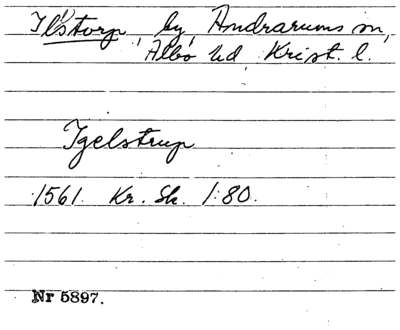 Illstorp, by, Andrarums sn,
Albo hd, Krist. l.
Igelstrup
1561. Kr. Sk. 1:80.
Nr 5897.